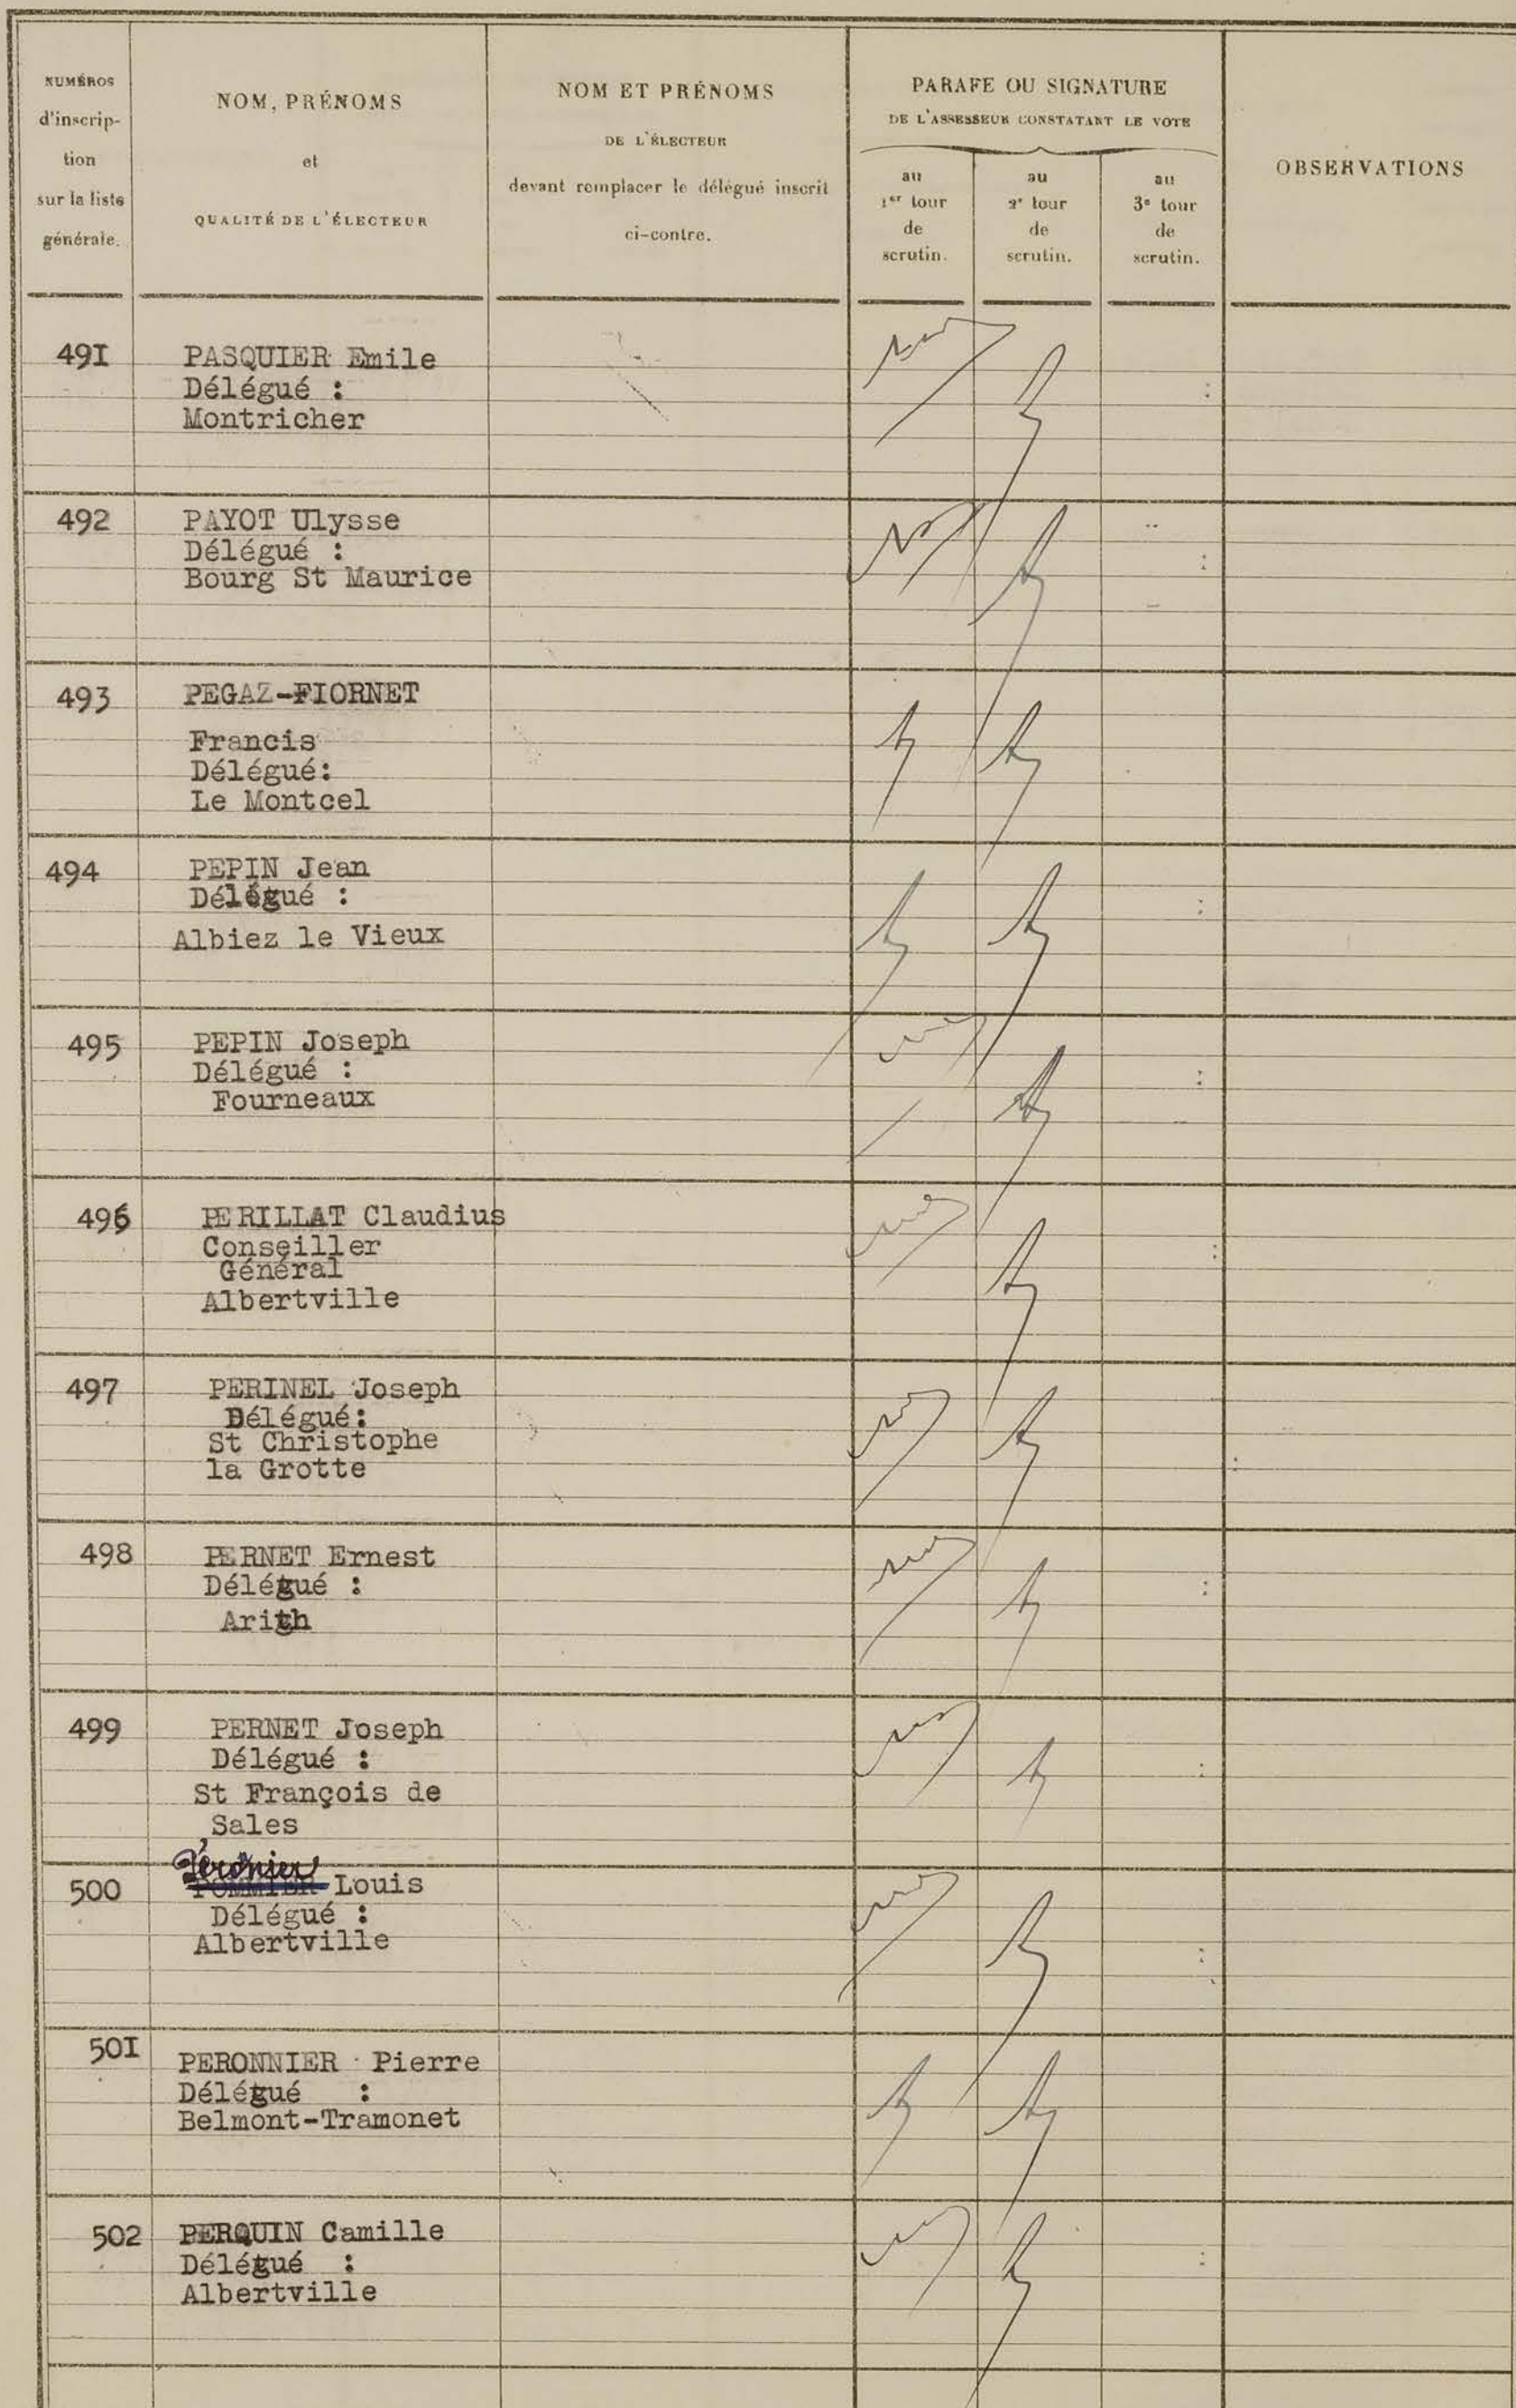 NUMÉROS
d'inscrip-
tion
sur la liste
générale.
NOM, PRÉNOMS
et
QUALITÉ DE L'ÉLECTEUR
NOM ET PRÉNOMS
DE L'ÉLECTEUR
devant remplacer le délégué inscrit
ci-contre.
PARAFE OU SIGNATURE
DE L'ASSESSEUR CONSTATANT LE VOTE
au
1er tour
de
scrutin.
au
2e tour
de
scrutin.
au
3e tour
de
scrutin.
OBSERVATIONS
49I PASQUIER Emile
Délégué :
Montricher
492 PAYOT Ulysse
Délégué :
Bourg St Maurice
493 PEGAZ-FIORNET
Francis
Délégué:
Le Montcel
494 PEPIN Jean
Délégué :
Albiez le Vieux
495 PEPIN Joseph
Délégué :
Fourneaux
496 PERILLAT Claudius
Conseiller
Général
Albertville
497 PERINEL Joseph
Délégué:
St Christophe
la Grotte
498 PERNET Ernest
Délégué :
Arith
499 PERNET Joseph
Délégué :
St François de
Sales
Péronier
500 POMMIER Louis
Délégué :
Albertville
50I PERONNIER Pierre
Délégué :
Belmont-Tramonet
502 PERQUIN Camille
Délégué :
Albertville